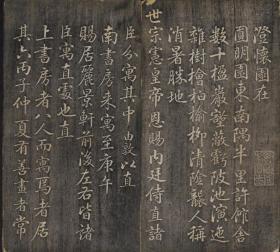 澄懷園在
圓明園東南隅半里許館舍
數十楹巖谿藏鶴陂池演迤
雜樹檜柏榆柳清陰罷人稱
消暑勝地
世宗憲皇帝恩賜内廷侍直諸
臣分寓其中由敦以直
南書房來寓至庚午
賜居麗景軒前後左右皆諸
臣寓直處也直
上書房者八人而寓焉者居
其六丙子仲夏有善畫者常